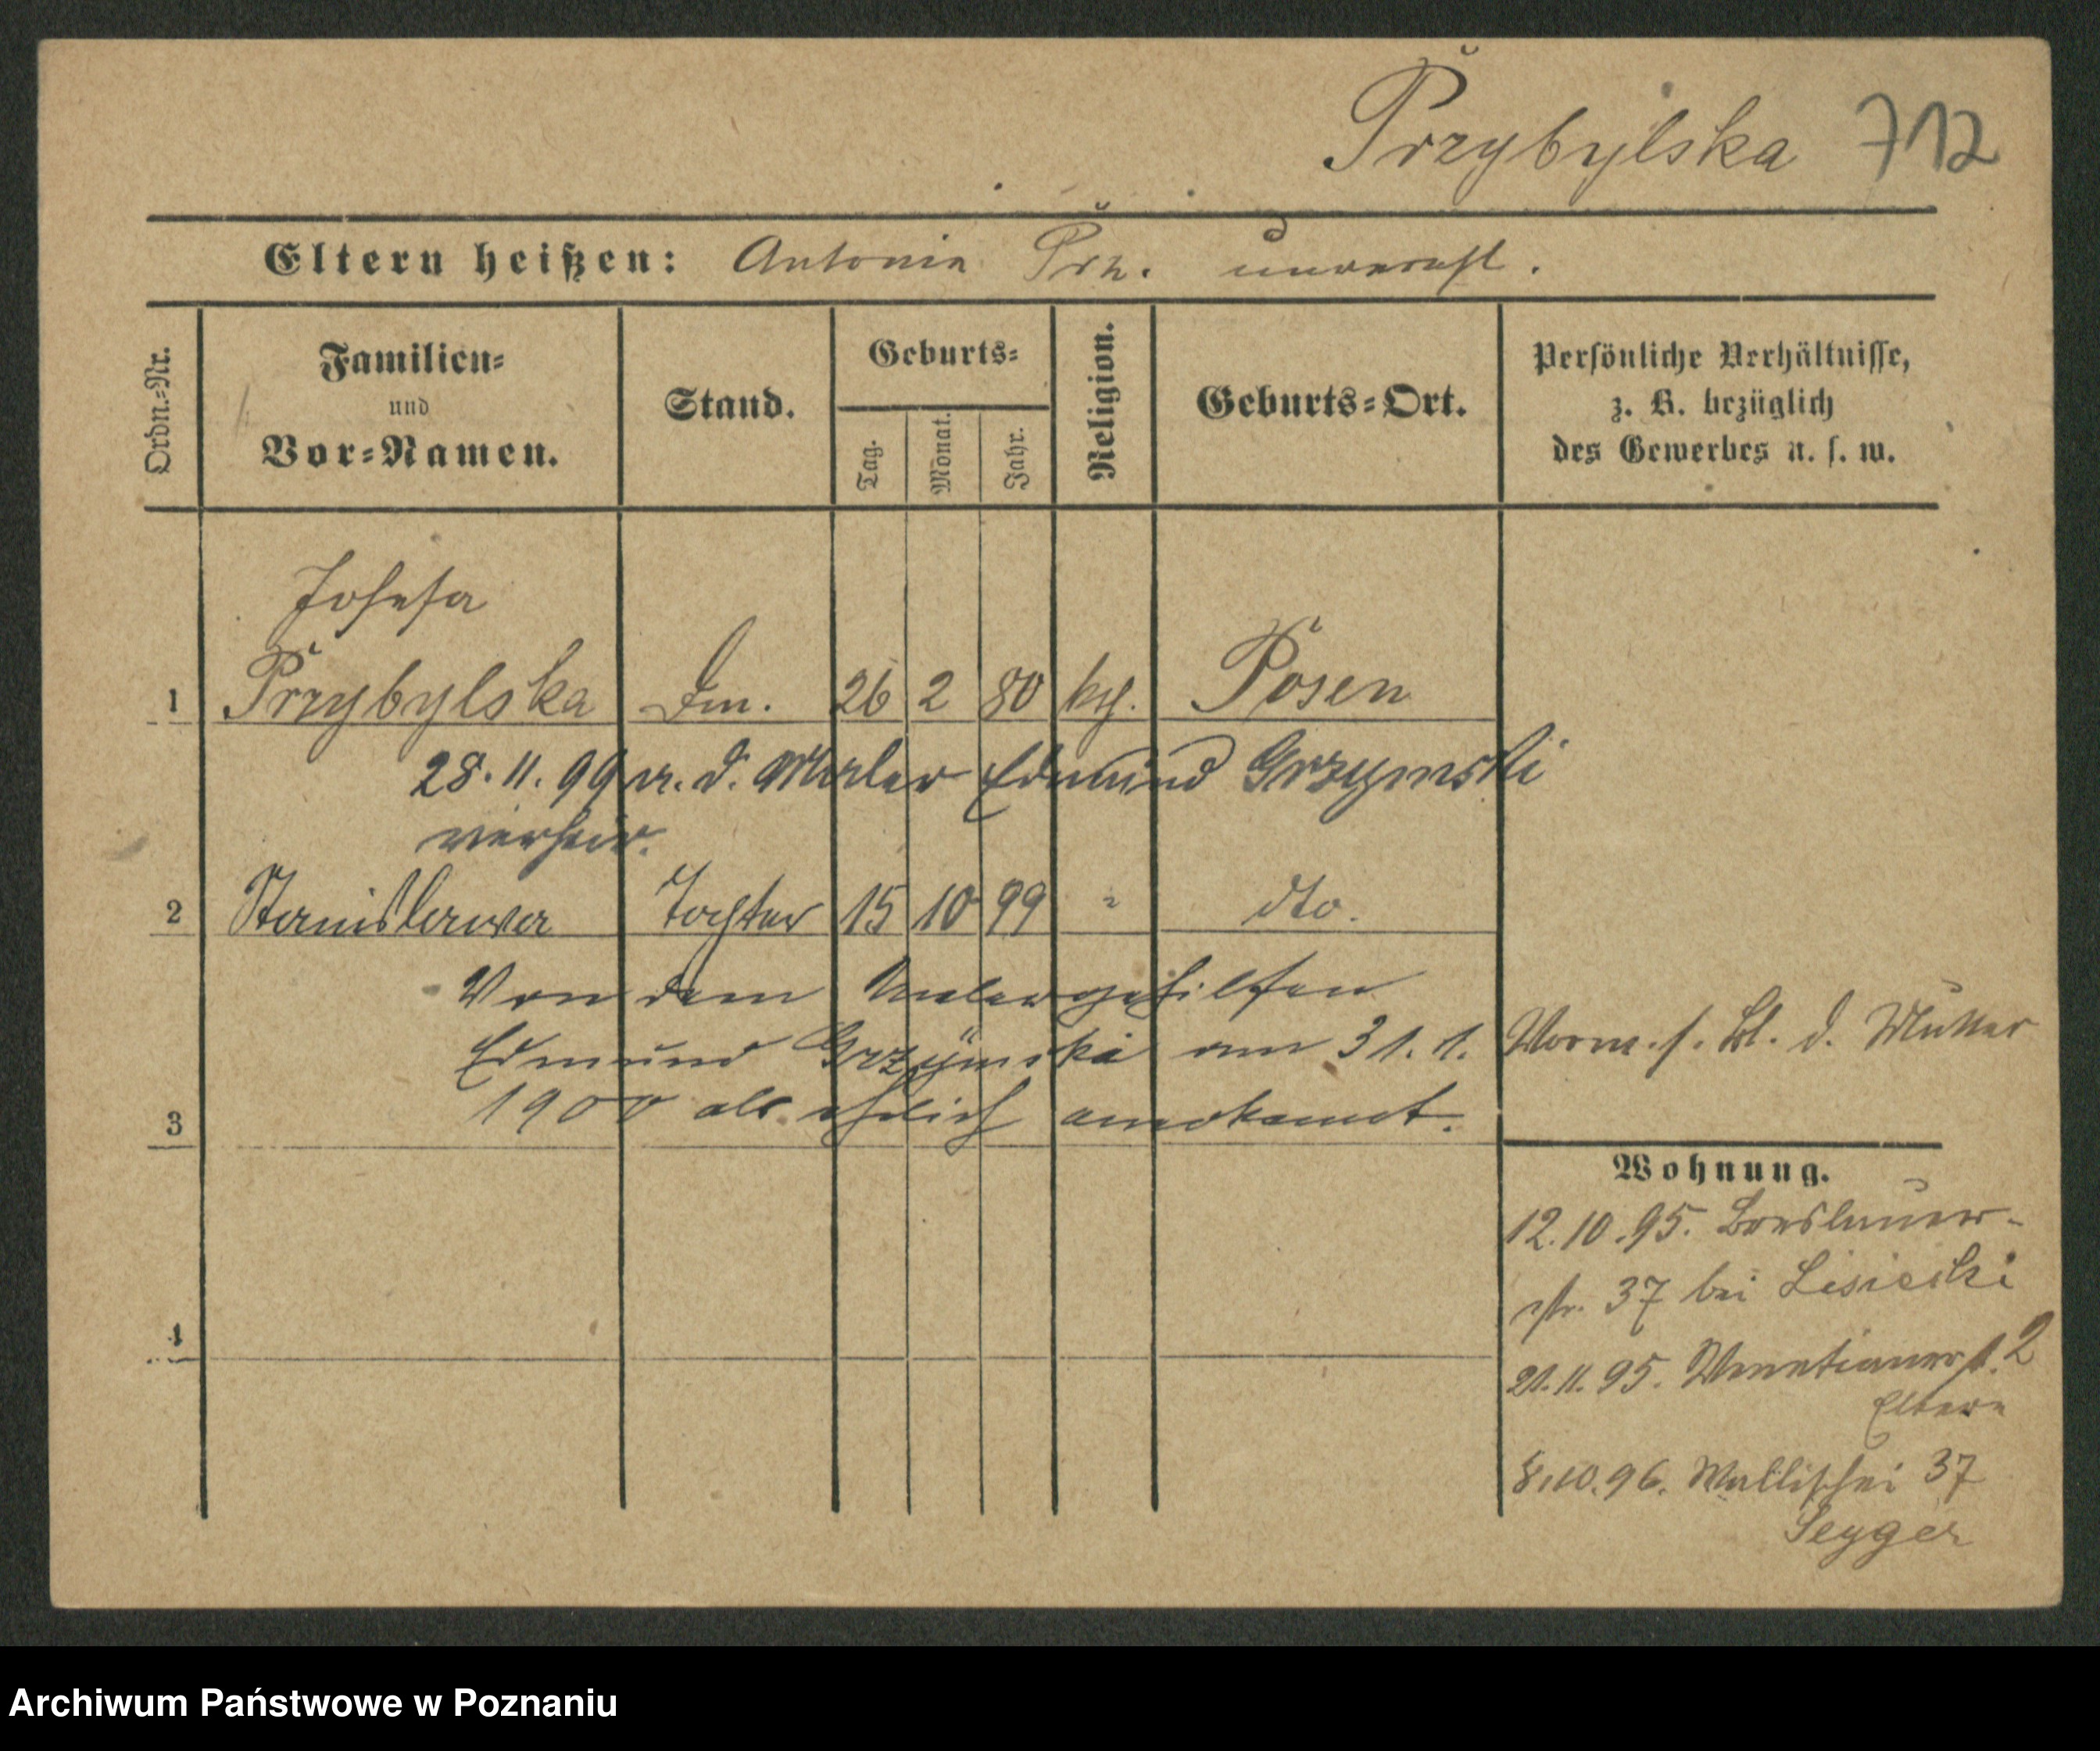 Przybylska 712
Eltern heißen: Antonia Prz. unverehl.
Ordn.-Nr.
Familien- und Vor-Namen.
Stand.
Geburts-
Tag.
Monat.
Jahr.
Religion.
Geburts-Ort.
Persönliche Verhältnisse,
z. B. bezüglich
des Gewerbes u. s. w.
Josefa
1 Przybylska 26 2 80 kth. Posen
28.11.99 m. d. Maler Edmund Grzymski
verheir.
2 Stanislawa Tochter 15 10 99 " dto.
Von dem Malergehilfen
Edmund Grzymski am 31.1.
1900 als ehelich anerkannt.
3
4
Vorm. s. Bl. d. Mutter
Wohnung.
12.10.95. Breslauer-
str. 37 bei Lisiecki
21.11.95. Venetianerst. 2
Eltern
8.10.96. Wallischei 37
Seyger
Archiwum Państwowe w Poznaniu